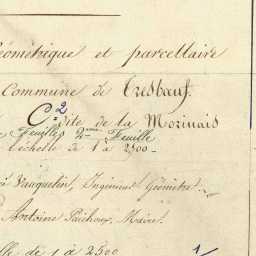 éométrique et parcellaire
Commune de Tresbœuf.
C 2 dite de la Morinais
Feuilles 2ème Feuille
l'échelle de 1 à 2500
Vauquelin, Ingénieur Géomètre
Antoine Maire
lle de 1 à 2500
1/